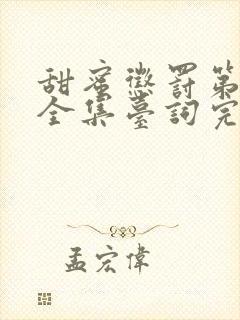 甜蜜懲罰第
全集臺詞完
孟宏偉